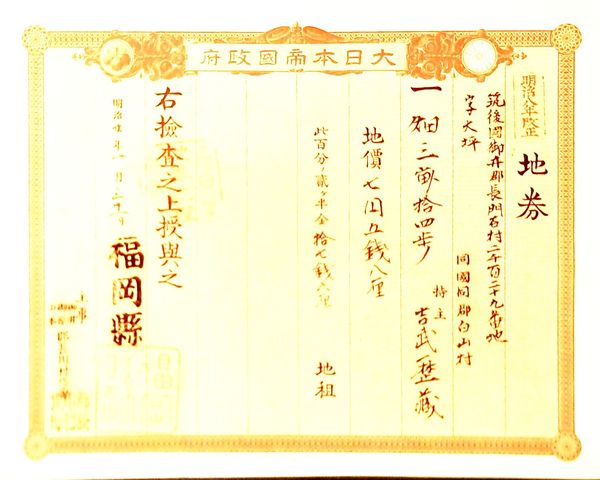 大日本帝國政府
明治八年改正
地券
筑後國御井郡長門石村二千百二十九番地
字大坪
同國同郡白山村
一畑三畝拾四歩
持主 吉武歷藏
地價七円五錢八厘
此百分ノ貳ヶ半金拾七錢六厘
地租
右檢查之上授與之
明治 年 月 日
福岡縣
主事